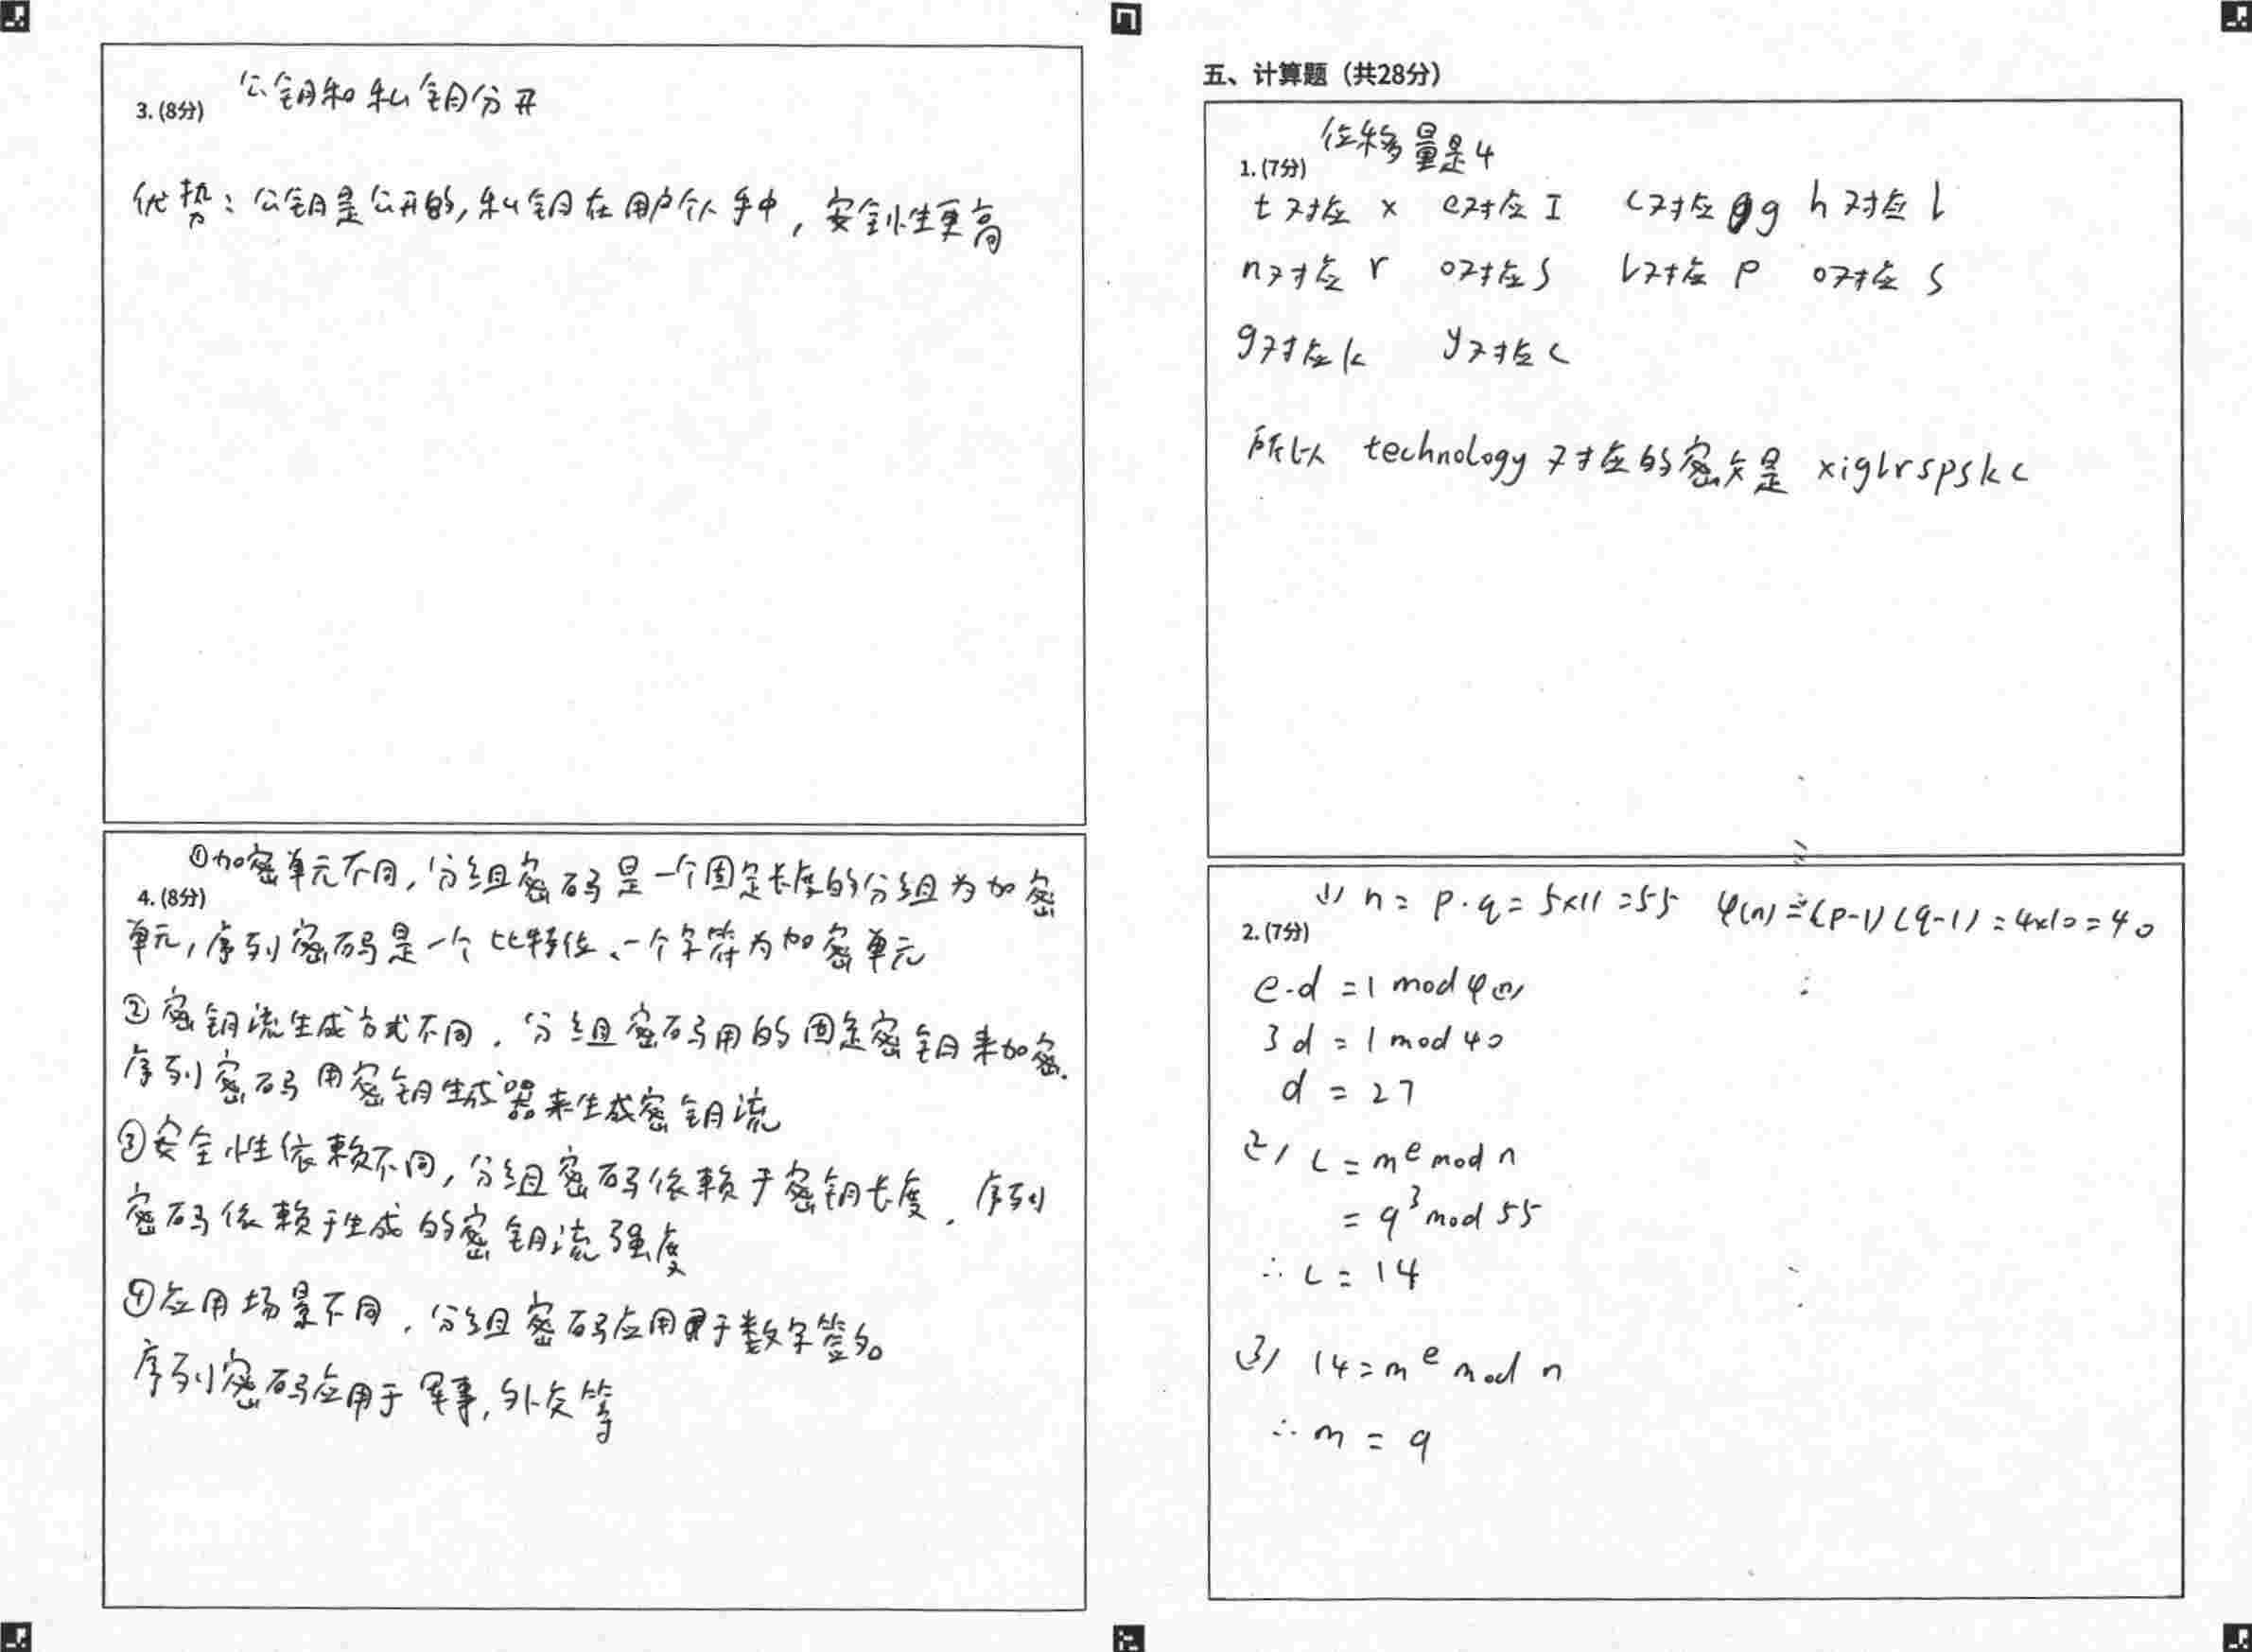 公钥和私钥分开
3. (8分)
优势：公钥是公开的，私钥在用户个人手中，安全性更高
①加密单元不同，分组密码是一个固定长度的分组为加密
4. (8分)
单元，序列密码是一个比特位、一个字符为加密单元
②密钥流生成方式不同，分组密码用的固定密钥来加密.
序列密码用密钥生成器来生成密钥流
③安全性依赖不同，分组密码依赖于密钥长度，序列
密码依赖于生成的密钥流强度
④应用场景不同，分组密码应用于数字签名。
序列密码应用于军事，外交等
五、计算题（共28分）
位移量是4
1. (7分)
t对应 x e对应 I c对应 g h对应 l
n对应 r o对应 s l对应 p o对应 s
g对应 k y对应 c
所以 technology 对应的密文是 xiglrspskc
(1) n = p·q = 5×11 = 55 φ(n) = (p-1)(q-1) = 4×10 = 40
2. (7分)
e·d = 1 mod φ(n)
3d = 1 mod 40
d = 27
(2) c = m^e mod n
= 9^3 mod 55
∴ c = 14
(3) 14 = m^e mod n
∴ m = 9